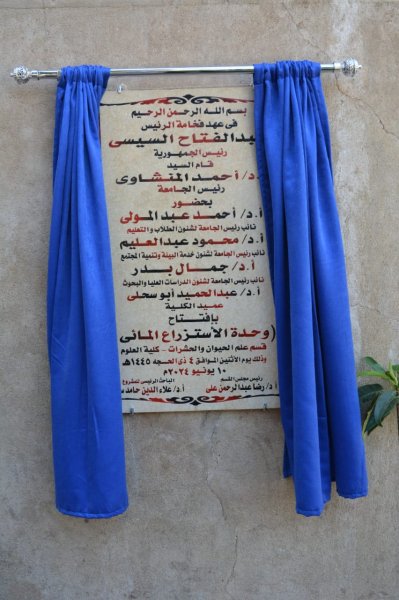 بسم الله الرحمن الرحيم
فى عهد فخامة الرئيس
عبدالفتاح السيسى
رئيس الجمهورية
قام السيد
أ.د/ أحمد المنشاوى
رئيس الجامعة
بحضور
أ.د/ أحمد عبد المولى
نائب رئيس الجامعة لشئون الطلاب والتعليم
أ.د/ محمود عبد العليم
نائب رئيس الجامعة لشئون خدمة البيئة وتنمية المجتمع
أ.د/ جمال بدر
نائب رئيس الجامعة لشئون الدراسات العليا والبحوث
أ.د/ عبدالحميد أبو سحلى
عميد الكلية
بإفتتاح
(وحدة الأستزراع المائى
قسم علم الحيوان والحشرات - كلية العلوم
وذلك يوم الأثنين الموافق ٤ ذى الحجه ١٤٤٥هـ
١٠ يونيو ٢٠٢٤م
رئيس مجلس القسم
الباحث الرئيسى للمشروع
أ.د/ رضا عبدالرحمن على
أ.د/ علاء الدين حامد